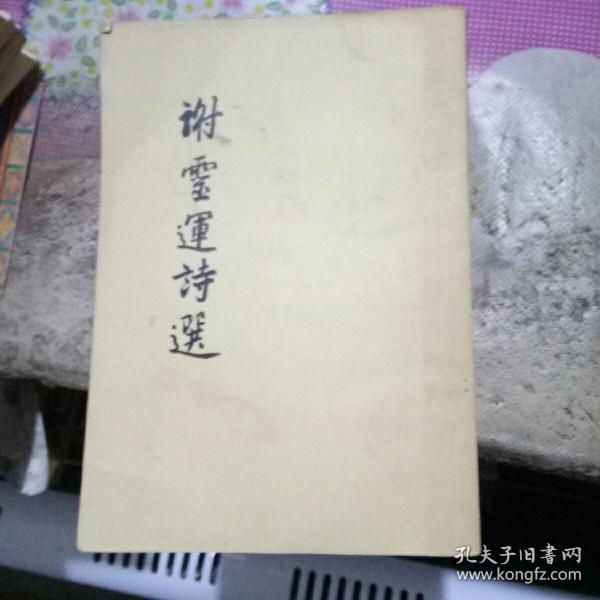 謝靈運詩選
孔夫子旧書网
www.kongfz.com